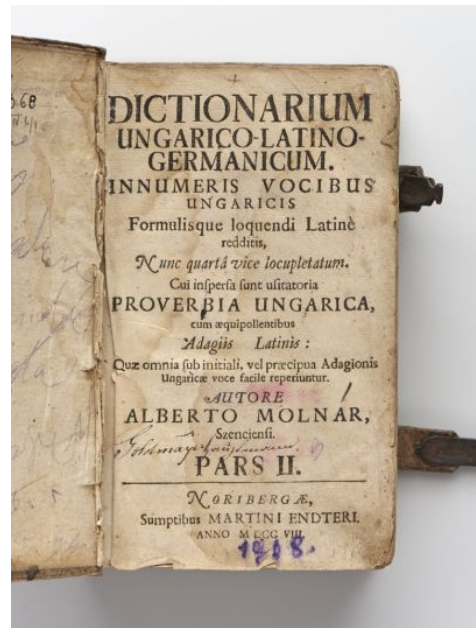 068
DICTIONARIUM
UNGARICO-LATINO-
GERMANICUM.
INNUMERIS VOCIBUS
UNGARICIS
Formulisque loquendi Latinè
redditis,
Nunc quartâ vice locupletatum.
Cui inſperſa ſunt uſitatoria
PROVERBIA UNGARICA,
cum æquipollentibus
Adagiis Latinis:
Quæ omnia ſub initiali, vel præcipua Adagionis
Ungaricæ voce facile reperiuntur.
AUTORE
ALBERTO MOLNAR,
Szencienſi.
PARS II.
NORIBERGÆ,
Sumptibus MARTINI ENDTERI.
ANNO M DCC VIII.
1908.